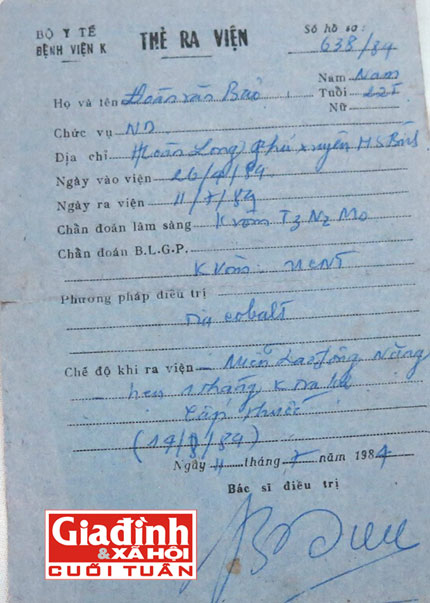 BỘ Y TẾ
BỆNH VIỆN K
THẺ RA VIỆN
Số hồ sơ:
638/84
Họ và tên Đoàn Văn Bảo
Nam Nam
Tuổi 22T
Nữ
Chức vụ ND
Địa chỉ Hoàn Long, Phú Xuyên H.S.Bình
Ngày vào viện 26/4/84
Ngày ra viện 11/7/84
Chẩn đoán lâm sàng K vòm T3 N2 Mo
Chẩn đoán B.L.G.P.
K vòm. UCNT
Phương pháp điều trị
Tia cobalt
Chế độ khi ra viện - Miễn Lao động Nặng
- hẹn 1 tháng K tra lại
Cấp thuốc
(14/8/84)
Ngày 11 tháng 7 năm 1984
Bác sĩ điều trị
Giađình
& XÃ HỘI
CUỐI TUẦN